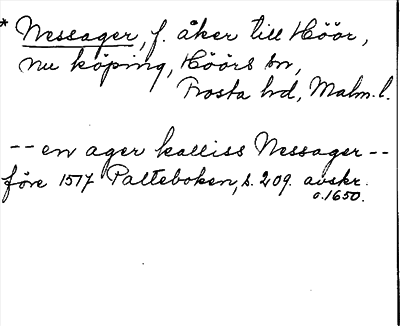 * Nessager, f. åker till Höör,
nu köping, Höörs sn,
Frosta hd, Malm. l.
-- en ager kalliss Nessager --
före 1517 Palteboken, s. 209. avskr.
o. 1650.